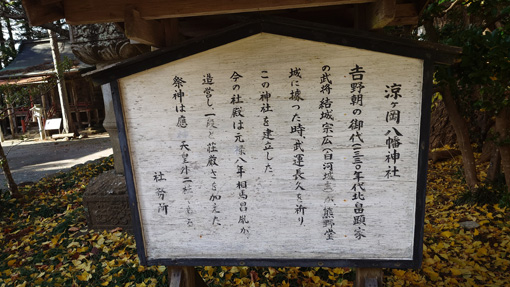 涼ヶ岡八幡神社
吉野朝の御代(一三三〇年代北畠顕家
の武将結城宗広(白河城主)が熊野堂
城に據った時、武運長久を祈り
この神社を建立した
今の社殿は元禄八年相馬昌胤が
造営し、一段と荘厳さを加えた、
祭神は應 天皇外二
社務所